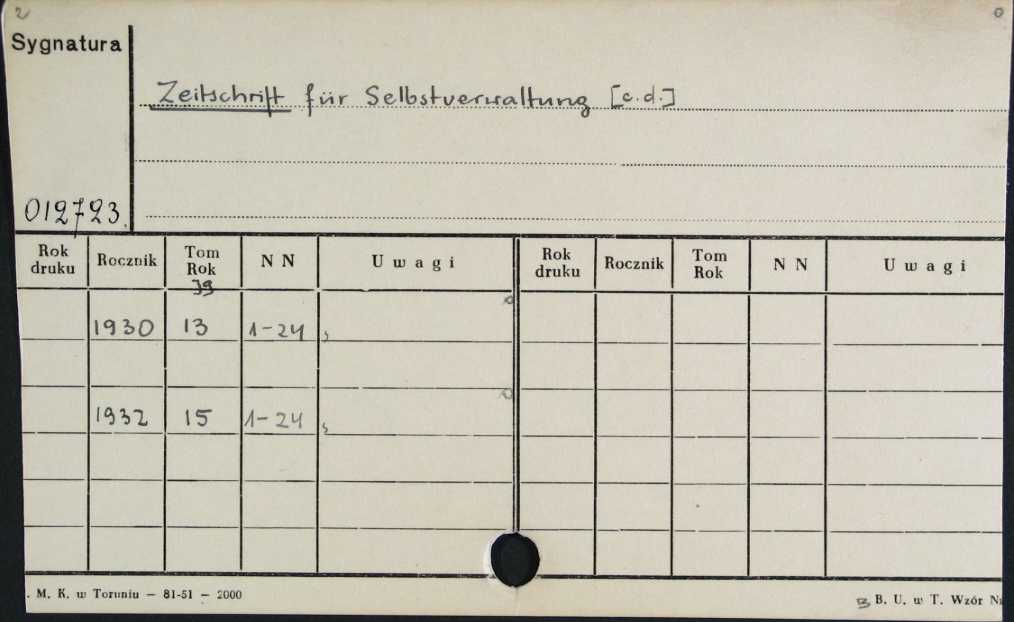 2 0
Sygnatura
Zeitschrift für Selbstverwaltung [c.d.]
012723.
Rok druku Rocznik Tom Rok N N Uwagi Rok druku Rocznik Tom Rok N N Uwagi
Jg
1930 13 1-24,
1932 15 1-24,
. M. K. w Toruniu — 81-51 — 2000
B. U. w T. Wzór N